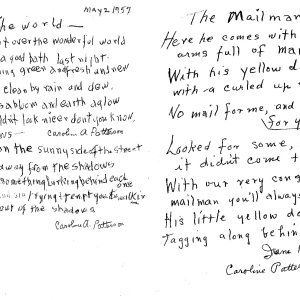 May 2 1957
he world —
t over the wonderful world
a good bath last night.
ing green and fresh and new
clean by rain and dew,
abloom and earth aglow
dn't look nicer don't you know.
Caroline A. Patterson
on the sunny side of the street
away from the shadows
something lurking behind each one
trying tempt you to walk in
out of the shadows
Caroline A. Patterson
The Mailman
Here he comes with
arms full of ma
With his yellow d
with a curled up
No mail for me, and
for y
Looked for some,
it didn't come t
With our very cong
mailman you'll always
His little yellow do
Tagging along behin
June
Caroline Patte